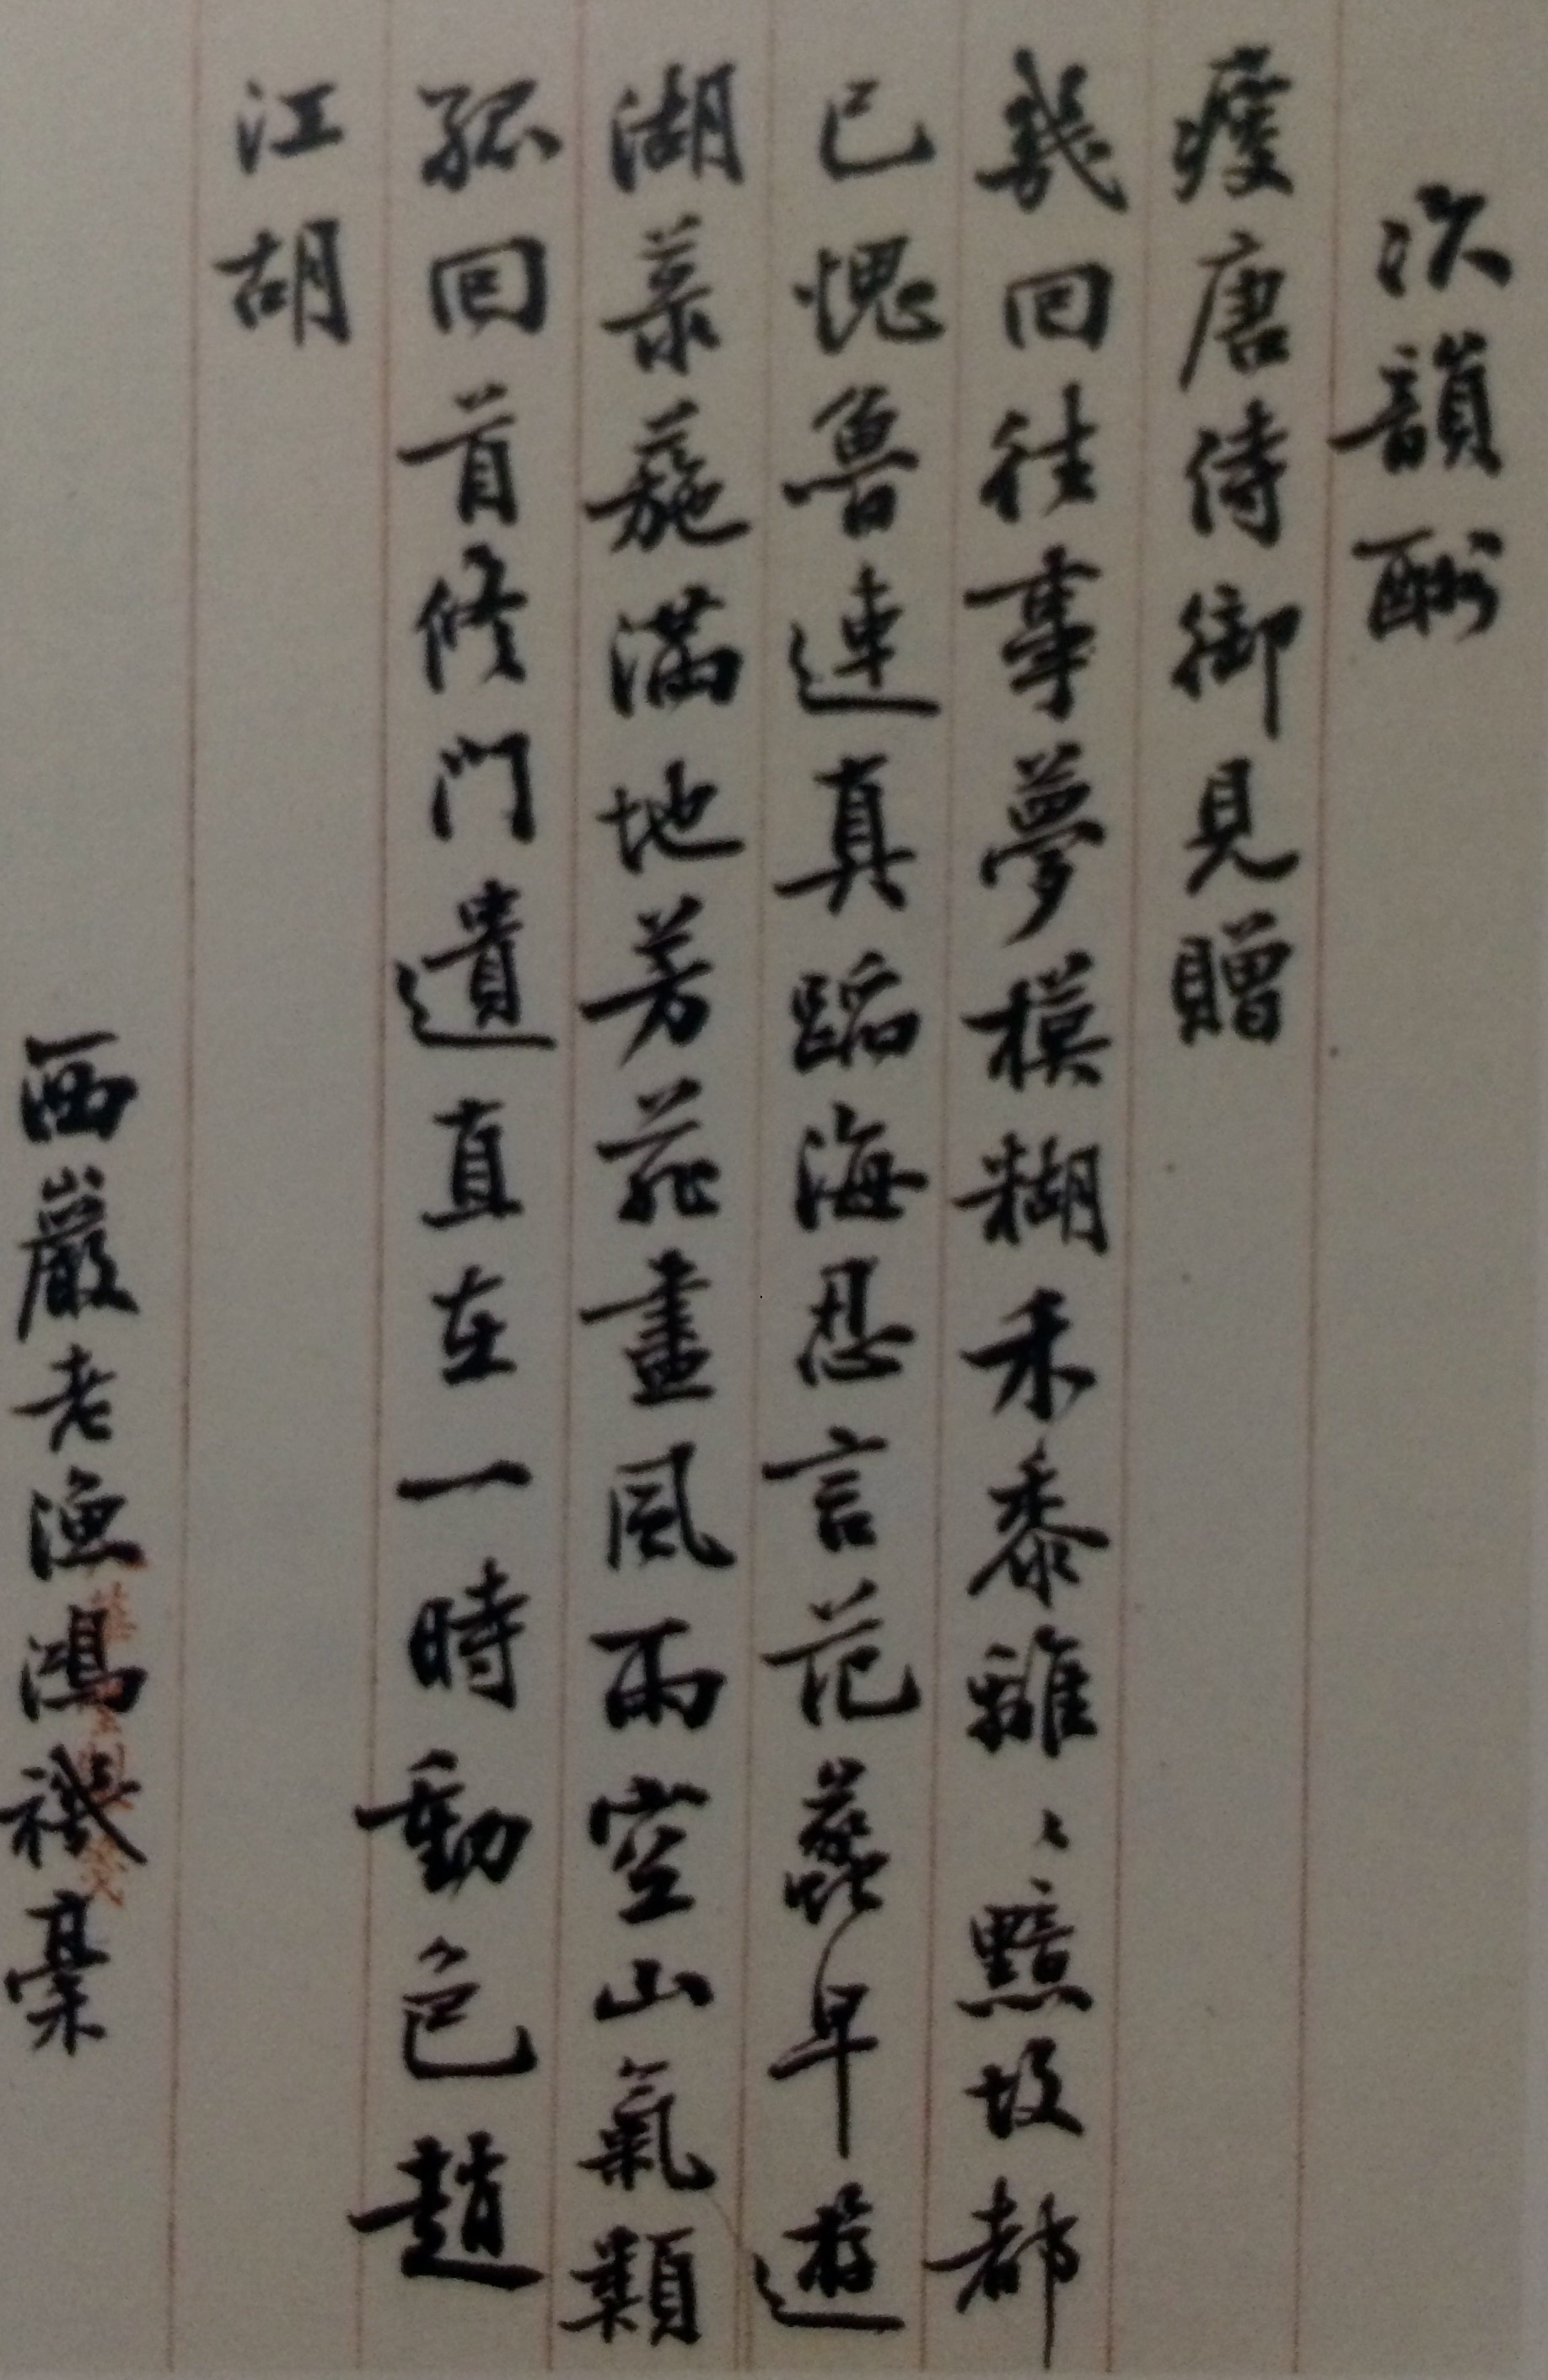 次韻酬
瘦唐侍御見贈
幾回往事夢模糊禾黍離〻黯故都
已愧魯連真蹈海忍言范蠡早遊
湖菉葹滿地芳菲盡風雨空山氣類
孤回首修門遺直在一時動色趙
江胡
西巖老漁鴻禨稾